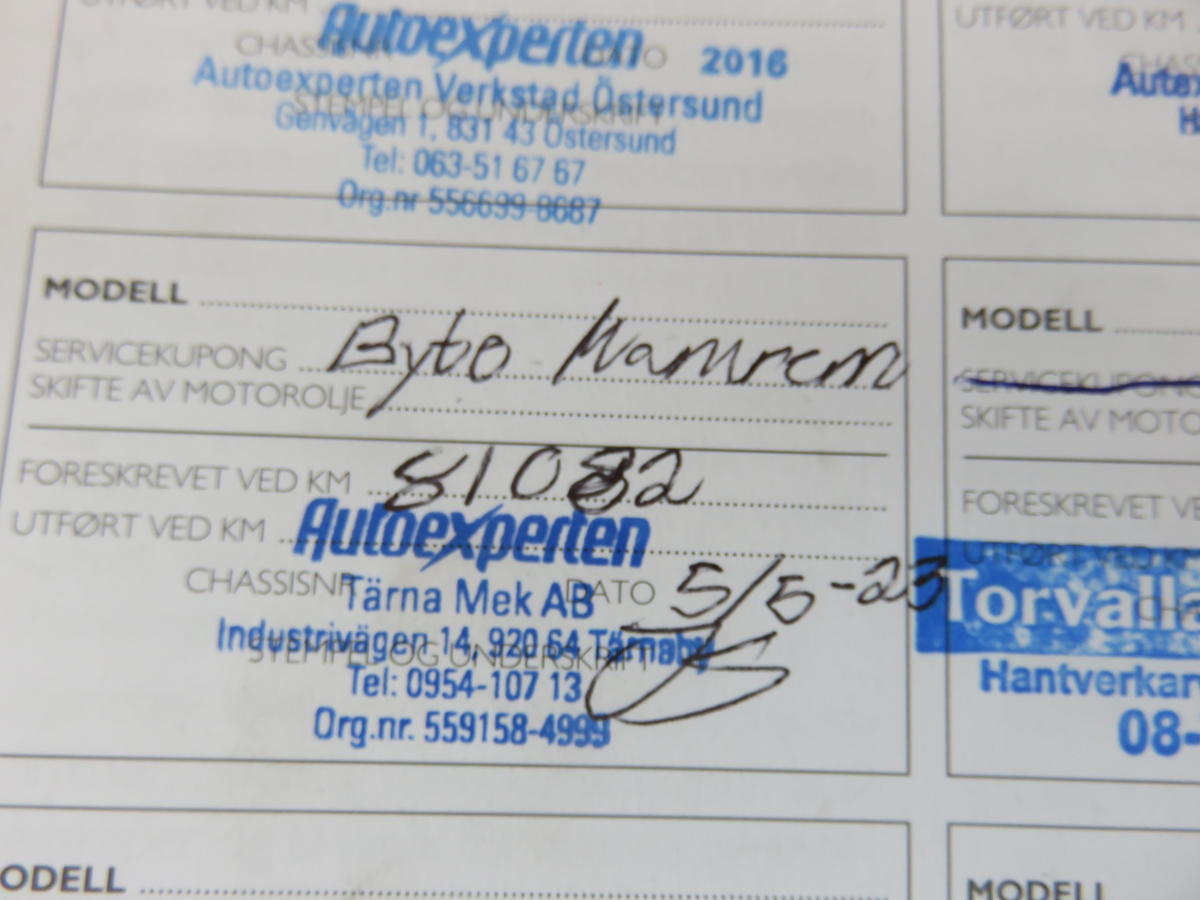 UTFØRT VED KM
Autoexperten
CHASSISNR DATO 2016
Autoexperten Verkstad Östersund
STEMPEL OG UNDERSKRIFT
Genvägen 1, 831 43 Östersund
Tel: 063-51 67 67
Org.nr 556699-8687
UTFØRT VED KM
MODELL
SERVICEKUPONG Byto Kamrem
SKIFTE AV MOTOROLJE
FORESKREVET VED KM 81082
UTFØRT VED KM
Autoexperten
CHASSISNR DATO 5/5-23
Tärna Mek AB
Industrivägen 14, 920 64 Tärnaby
STEMPEL OG UNDERSKRIFT
Tel: 0954-107 13
Org.nr. 559158-4999
MODELL
SERVICEKUPONG
SKIFTE AV MOTO
FORESKREVET VE
UTFØRT VED KM
Torvalla
Hantverkar
08-
ODELL
MODELL